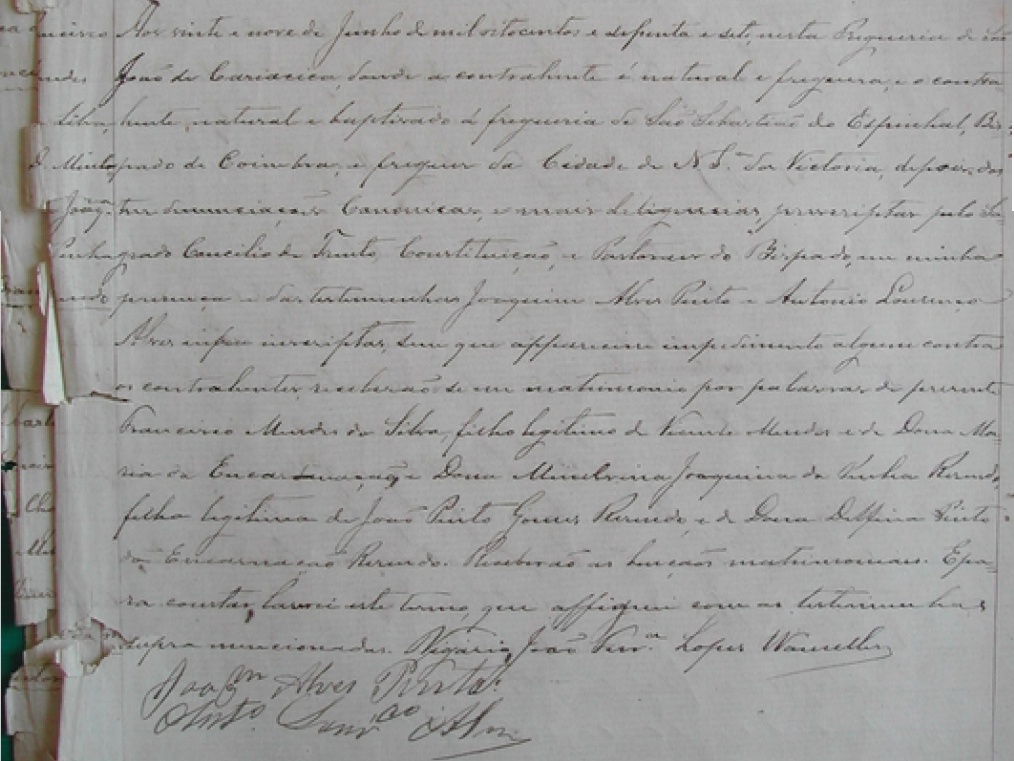 Aos vinte e nove de Junho de mil oitocentos e septenta e sete, nesta Freguesia de São
João de Cariacica, donde a contrahente é natural e fregueza, e o contra
hente, natural e baptisado á freguesia de São Sebastião do Espinhal, Bis=
pado de Coimbra, e freguez da Cidade de N. S.ra da Victoria, depois das
tres denunciações Canonicas, e mais deligencias, prescriptas pelo Sa=
grado Concilio de Trento, Constituição, e do Bispado, em minha
presença e das testemunhas Joaquim Alves Pinto e Antonio Lourenço
Alves infra inscriptas, sem que apparecesse impedimento algum contra
os contrahentes, receberão-se em matrimonio por palavras de presente
Francisco Mendes da Silva, filho legitimo de Vicente Mendes e de Dona Ma=
ria da Encarnação, e Dona Minelvina Joaquina da Penha
filha legitima de João Pinto Gomes e de Dona Delfina Pinto
da Encarnação. Receberão as bençãos matrimoniaes. E pa=
ra constar, lavrei este termo, que assignei com as testemunhas
supra mencionadas. Vigario, João Lopes
Joaqm Alves Pinto
Anto Lourço Alves